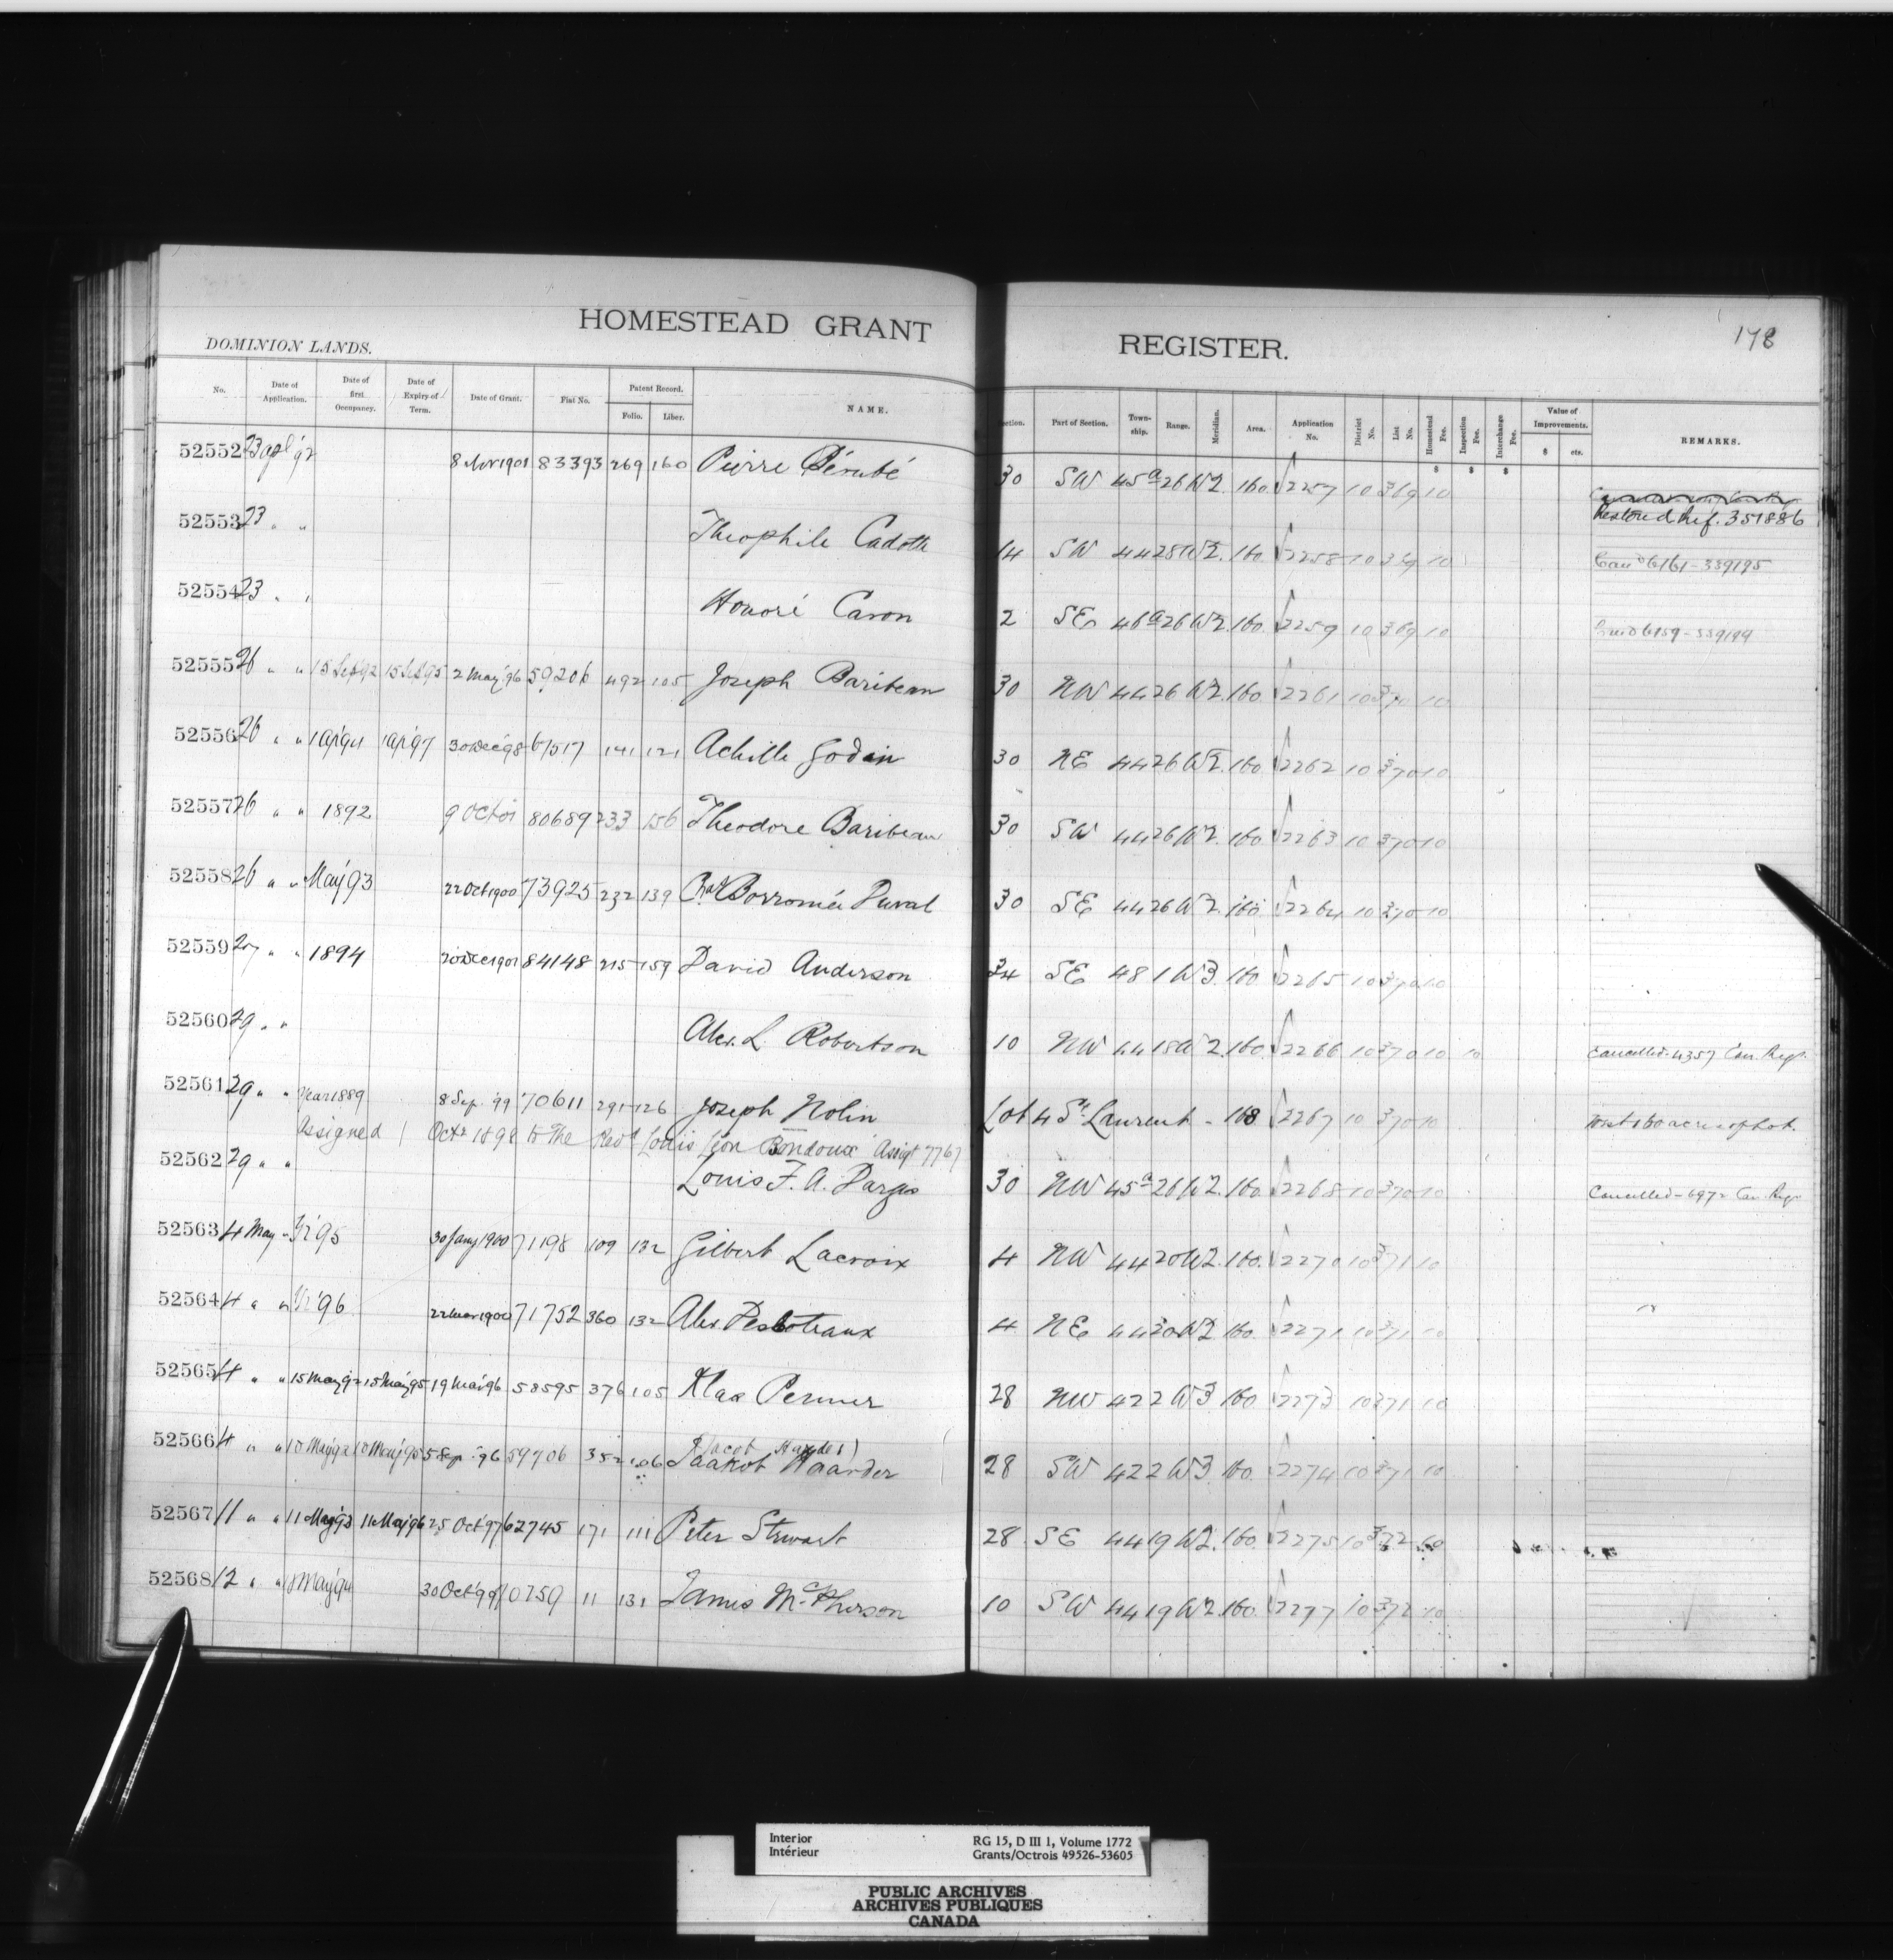 178
HOMESTEAD GRANT REGISTER.
DOMINION LANDS.
No. Date of Application. Date of first Occupancy. Date of Expiry of Term. Date of Grant. Fiat No. Patent Record. Folio. Liber. NAME. Part of Section. Town-ship. Range. Meridian. Area. Application No. District No. List No. Homestead Fee. Inspection Fee. Interchange Fee. Value of Improvements. $ cts. REMARKS.
52552 23 apl '92 8 Nov 1901 83393 269 160 Pierre Bérubé 30 SW 45a 26 W2. 160. 2257 10 369 10
Restored Ref. 351886
52553 23 " " Theophile Cadotte 14 SW 44 28 W2. 160. 2258 10 369 10 6161-339195
52554 23 " " Honoré Caron 2 SE 46a 26 W2. 160. 2259 10 369 10 6159-339194
52555 26 " " 15 Sep 92 15 Sep 95 2 May '96 59206 492 105 Joseph Baribeau 30 NW 44 26 W2. 160. 2261 10 370 10
52556 26 " " 1 Ap '94 1 Ap '97 30 Dec '98 67517 141 121 Achille Godin 30 NE 44 26 W2. 160. 2262 10 370 10
52557 26 " " 1892 9 Oct 01 80689 233 156 Theodore Baribeau 30 SW 44 26 W2. 160. 2263 10 370 10
52558 26 " " May '93 22 Oct 1900 73925 232 139 Chas Borromée Duval 30 SE 44 26 W2. 160. 2264 10 370 10
52559 27 " " 1894 20 Dec 1901 84148 215 159 David Anderson 34 SE 48 1 W3. 160. 2265 10 370 10
52560 29 " " Alex. L. Robertson 10 NW 44 18 W2. 160. 2266 10 370 10 10 Cancelled-4357 Can. Regr.
52561 29 " " Year 1889 8 Sep. '99 70611 291 126 Joseph Nolin Lot 4 St. Laurent - 168 2267 10 370 10 West 160 acres of Lot.
Assigned 1 Octr 1898 to the Revd Louis Léon Bondoux Assigt 7767
52562 29 " " Louis F. A. Dargis 30 NW 45a 26 W2. 160. 2268 10 370 10 Cancelled-6972 Can. Regr.
52563 4 May " Yr '95 30 Jany 1900 71198 109 132 Gilbert Lacroix 4 NW 44 20 W2. 160. 2270 10 371 10
52564 4 " " Yr '96 22 Mar 1900 71752 360 132 Alex. Desboteaux 4 NE 44 20 W2 160. 2271 10 371 10
52565 4 " " 15 May '92 15 May '95 19 Mar '96 58595 376 105 Klaa Penner 28 NW 42 2 W3 160 2273 10 371 10
52566 4 " " 10 May '92 10 May '95 5 Sep. '96 59706 352 106 (Jacob Harder) Jaakob Haarder 28 SW 42 2 W3. 160. 2274 10 371 10
52567 11 " " 11 May '93 11 May '96 25 Oct '97 62745 171 111 Peter Stewart 28 SE 44 19 W2. 160. 2275 10 372 10
52568 12 " " May '94 30 Oct '99 70759 11 131 James McPherson 10 SW 44 19 W2. 160. 2277 10 372 10
Interior RG 15, D III 1, Volume 1772
Intérieur Grants/Octrois 49526-53605
PUBLIC ARCHIVES
ARCHIVES PUBLIQUES
CANADA